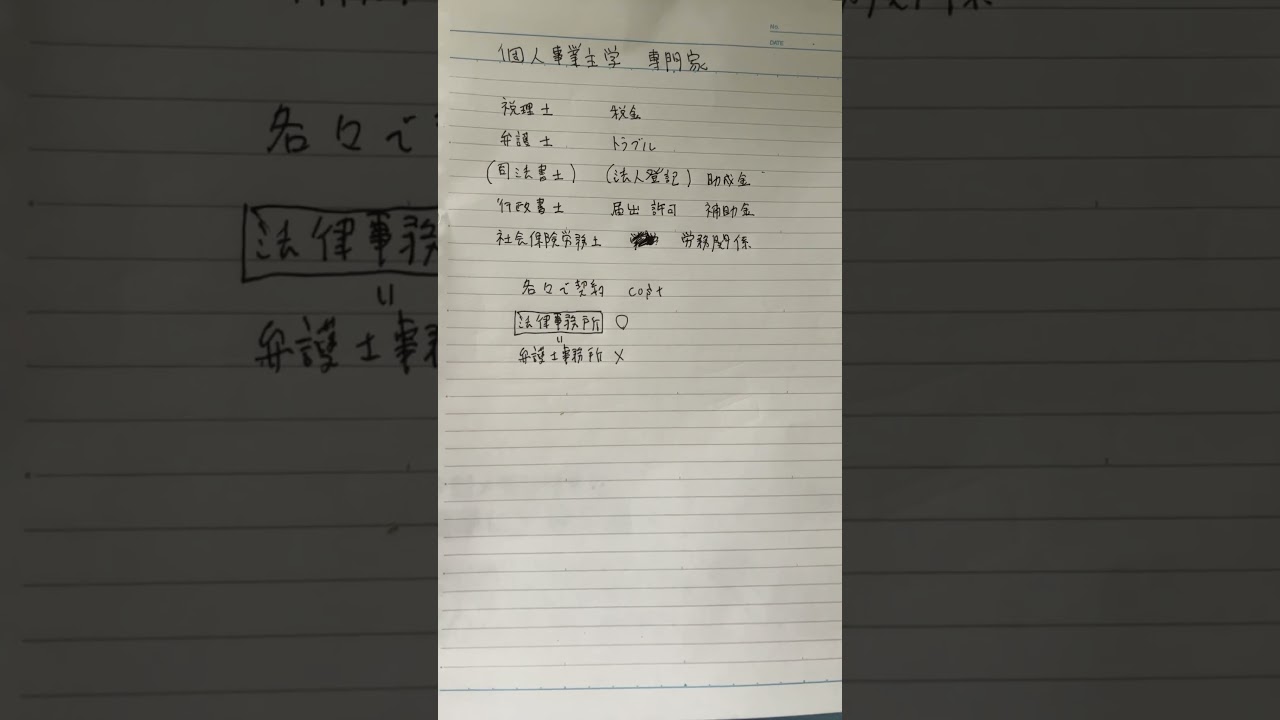 No.
DATE
個人事業主学 専門家
税理士 税金
弁護士 トラブル
(司法書士) (法人登記) 助成金
行政書士 届出 許可 補助金
社会保険労務士 労務関係
各々で契約 cost
法律事務所 ○
〃
弁護士事務所 ×